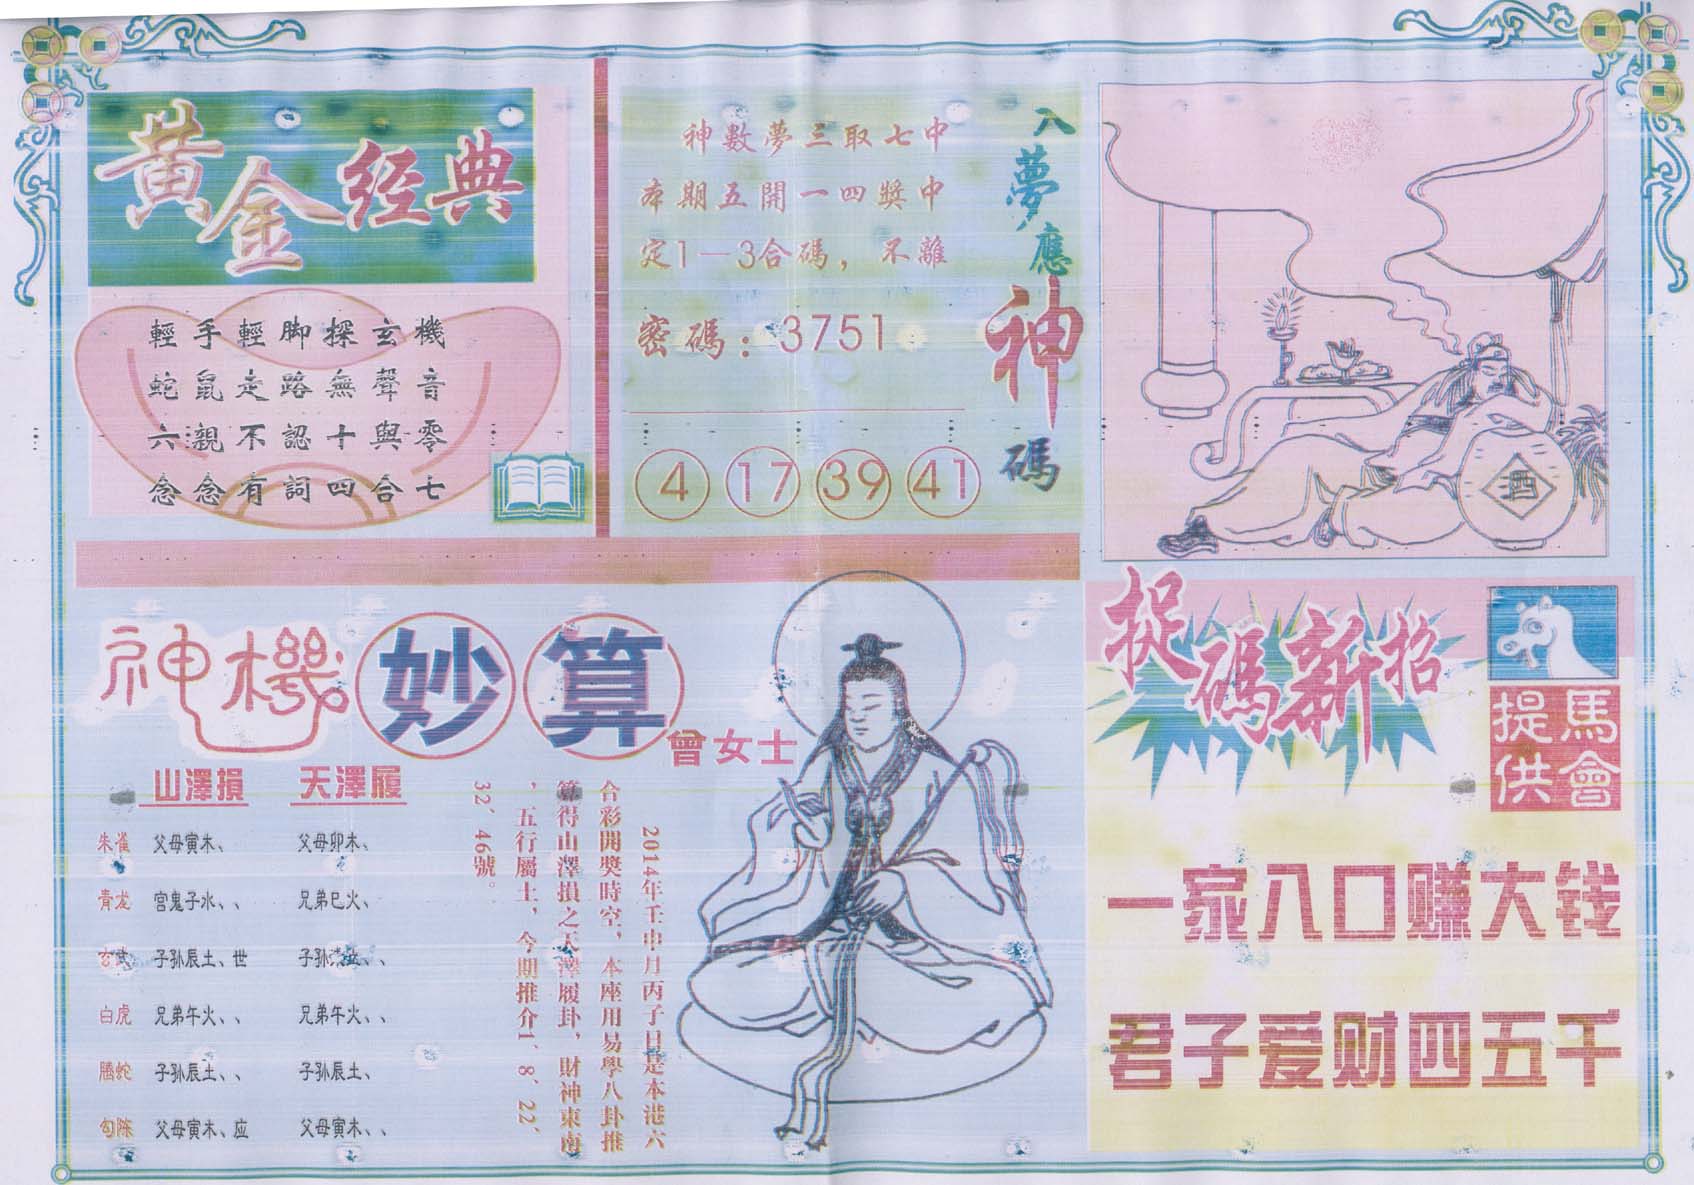 黄金经典
輕手輕脚探玄機
蛇鼠走路無聲音
六親不認十與零
念念有詞四合七
入夢應神碼
神數夢三取七中
本期五開一四獎中
定1—3合碼，不離
密碼：3751
4 17 39 41
酒
神機妙算
曾女士
山澤損 天澤履
朱雀 父母寅木、 父母卯木、
青龙 官鬼子水、、 兄弟巳火、
玄武 子孙辰土、世 子孙
白虎 兄弟午火、、 兄弟午火、、
腾蛇 子孙辰土、、 子孙辰土、
勾陈 父母寅木、应 父母寅木、、
2014年壬申月丙子日是本港六
合彩開獎時空，本座用易學八卦推
算得山澤損之天澤履卦，財神東南
，五行屬土，今期推介1、8、22、
32、46號。
捉碼新招
馬會提供
一家入口赚大钱
君子爱财四五千